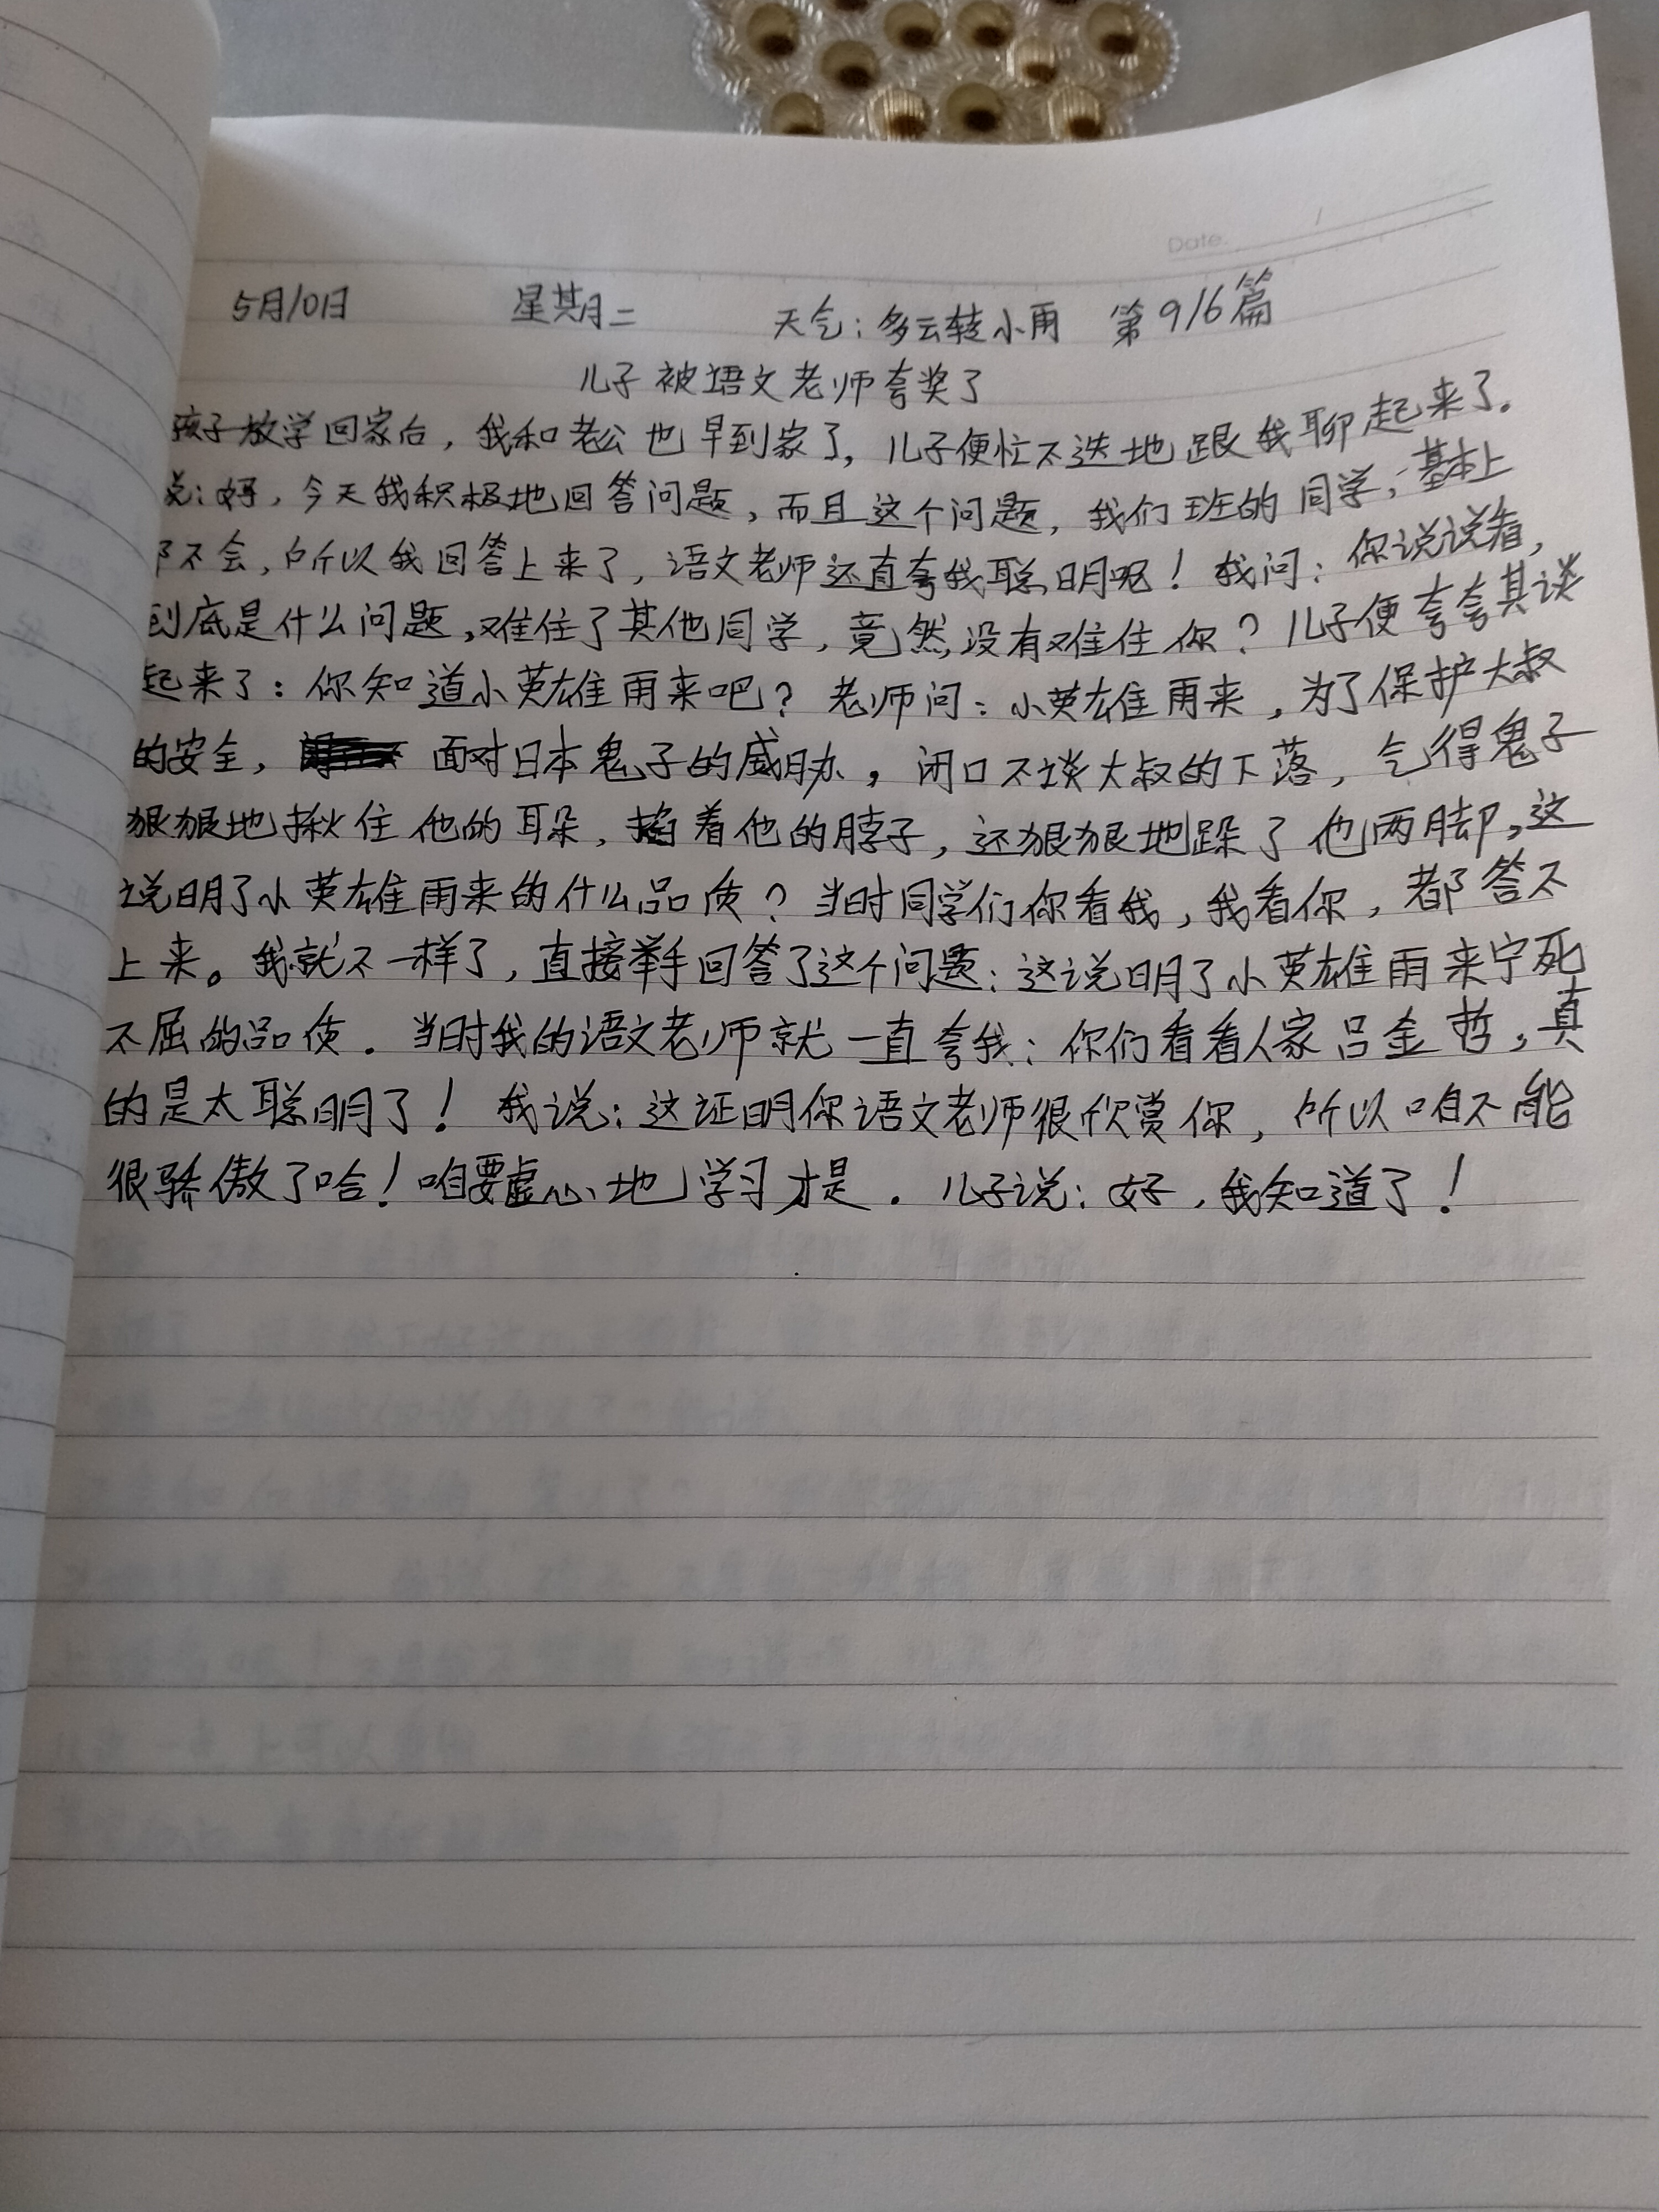 Date.
5月10日 星期二 天气:多云转小雨 第916篇
儿子被语文老师夸奖了
孩子放学回家后,我和老公也早到家了,儿子便忙不迭地跟我聊起来了。
说:妈,今天我积极地回答问题,而且这个问题,我们班的同学,基本上
都不会,所以我回答上来了,语文老师还直夸我聪明呢!我问:你说说看,
到底是什么问题,难住了其他同学,竟然没有难住你?儿子便夸夸其谈
起来了:你知道小英雄雨来吧?老师问:小英雄雨来,为了保护大叔
的安全,面对日本鬼子的威胁,闭口不谈大叔的下落,气得鬼子
狠狠地揪住他的耳朵,掐着他的脖子,还狠狠地跺了他两脚,这
说明了小英雄雨来的什么品质?当时同学们你看我,我看你,都答不
上来。我就不一样了,直接举手回答了这个问题:这说明了小英雄雨来宁死
不屈的品质.当时我的语文老师就一直夸我:你们看看人家吕金哲,真
的是太聪明了!我说:这证明你语文老师很欣赏你,所以咱不能
很骄傲了哈!咱要虚心地学习才是.儿子说:好,我知道了!